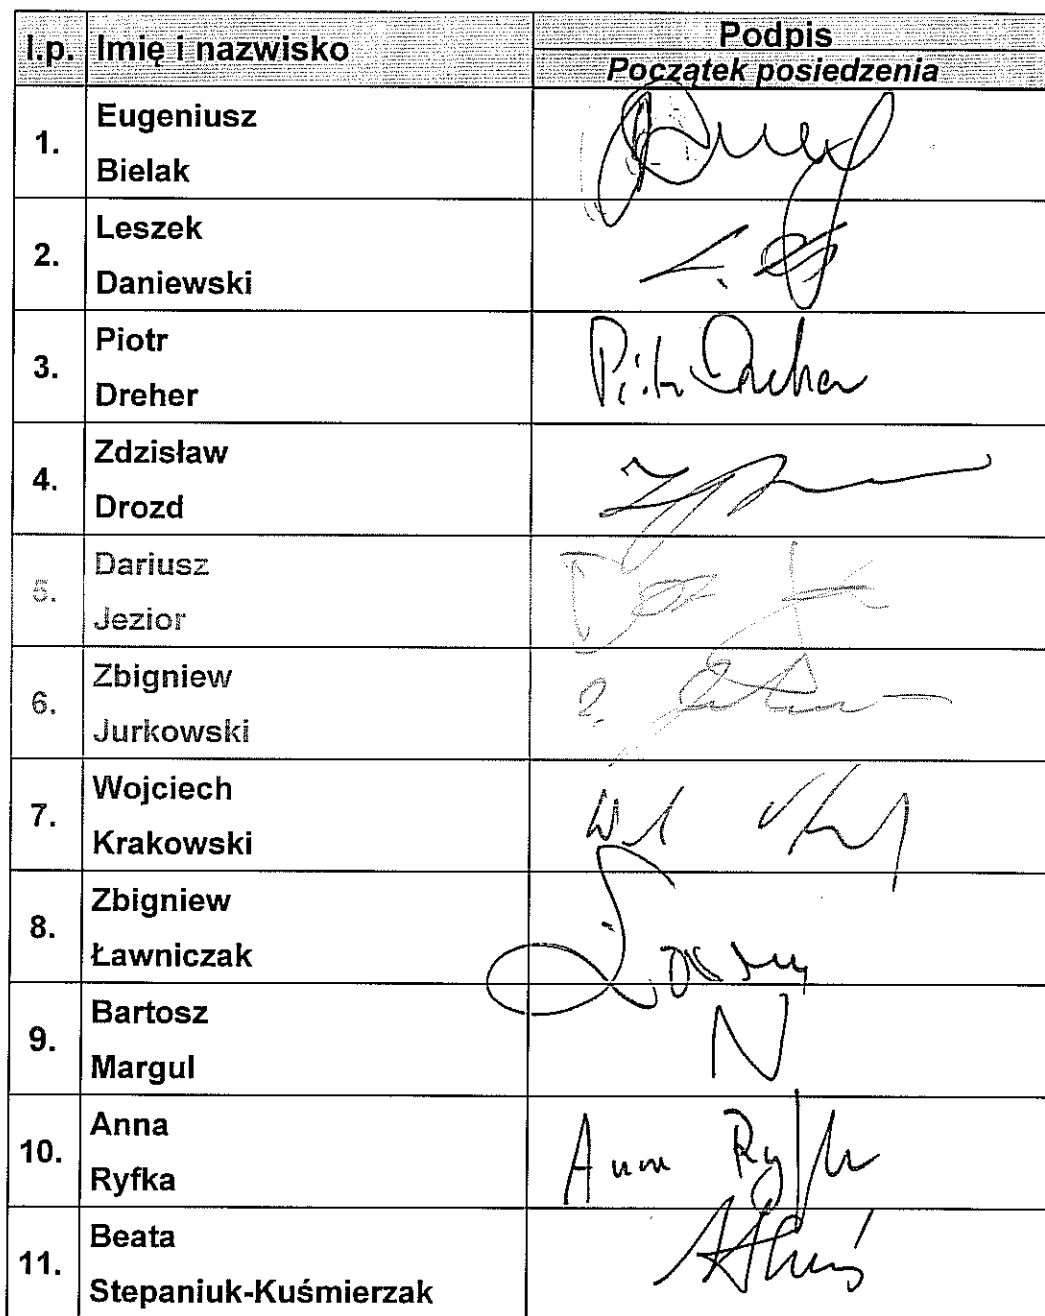 l.p. Imię i nazwisko Podpis
Początek posiedzenia
1. Eugeniusz
Bielak
2. Leszek
Daniewski
3. Piotr
Dreher
Piotr Dreher
4. Zdzisław
Drozd
5. Dariusz
Jezior
6. Zbigniew
Jurkowski
7. Wojciech
Krakowski
8. Zbigniew
Ławniczak
9. Bartosz
Margul
N
10. Anna
Ryfka
Anna Ryfka
11. Beata
Stepaniuk-Kuśmierzak